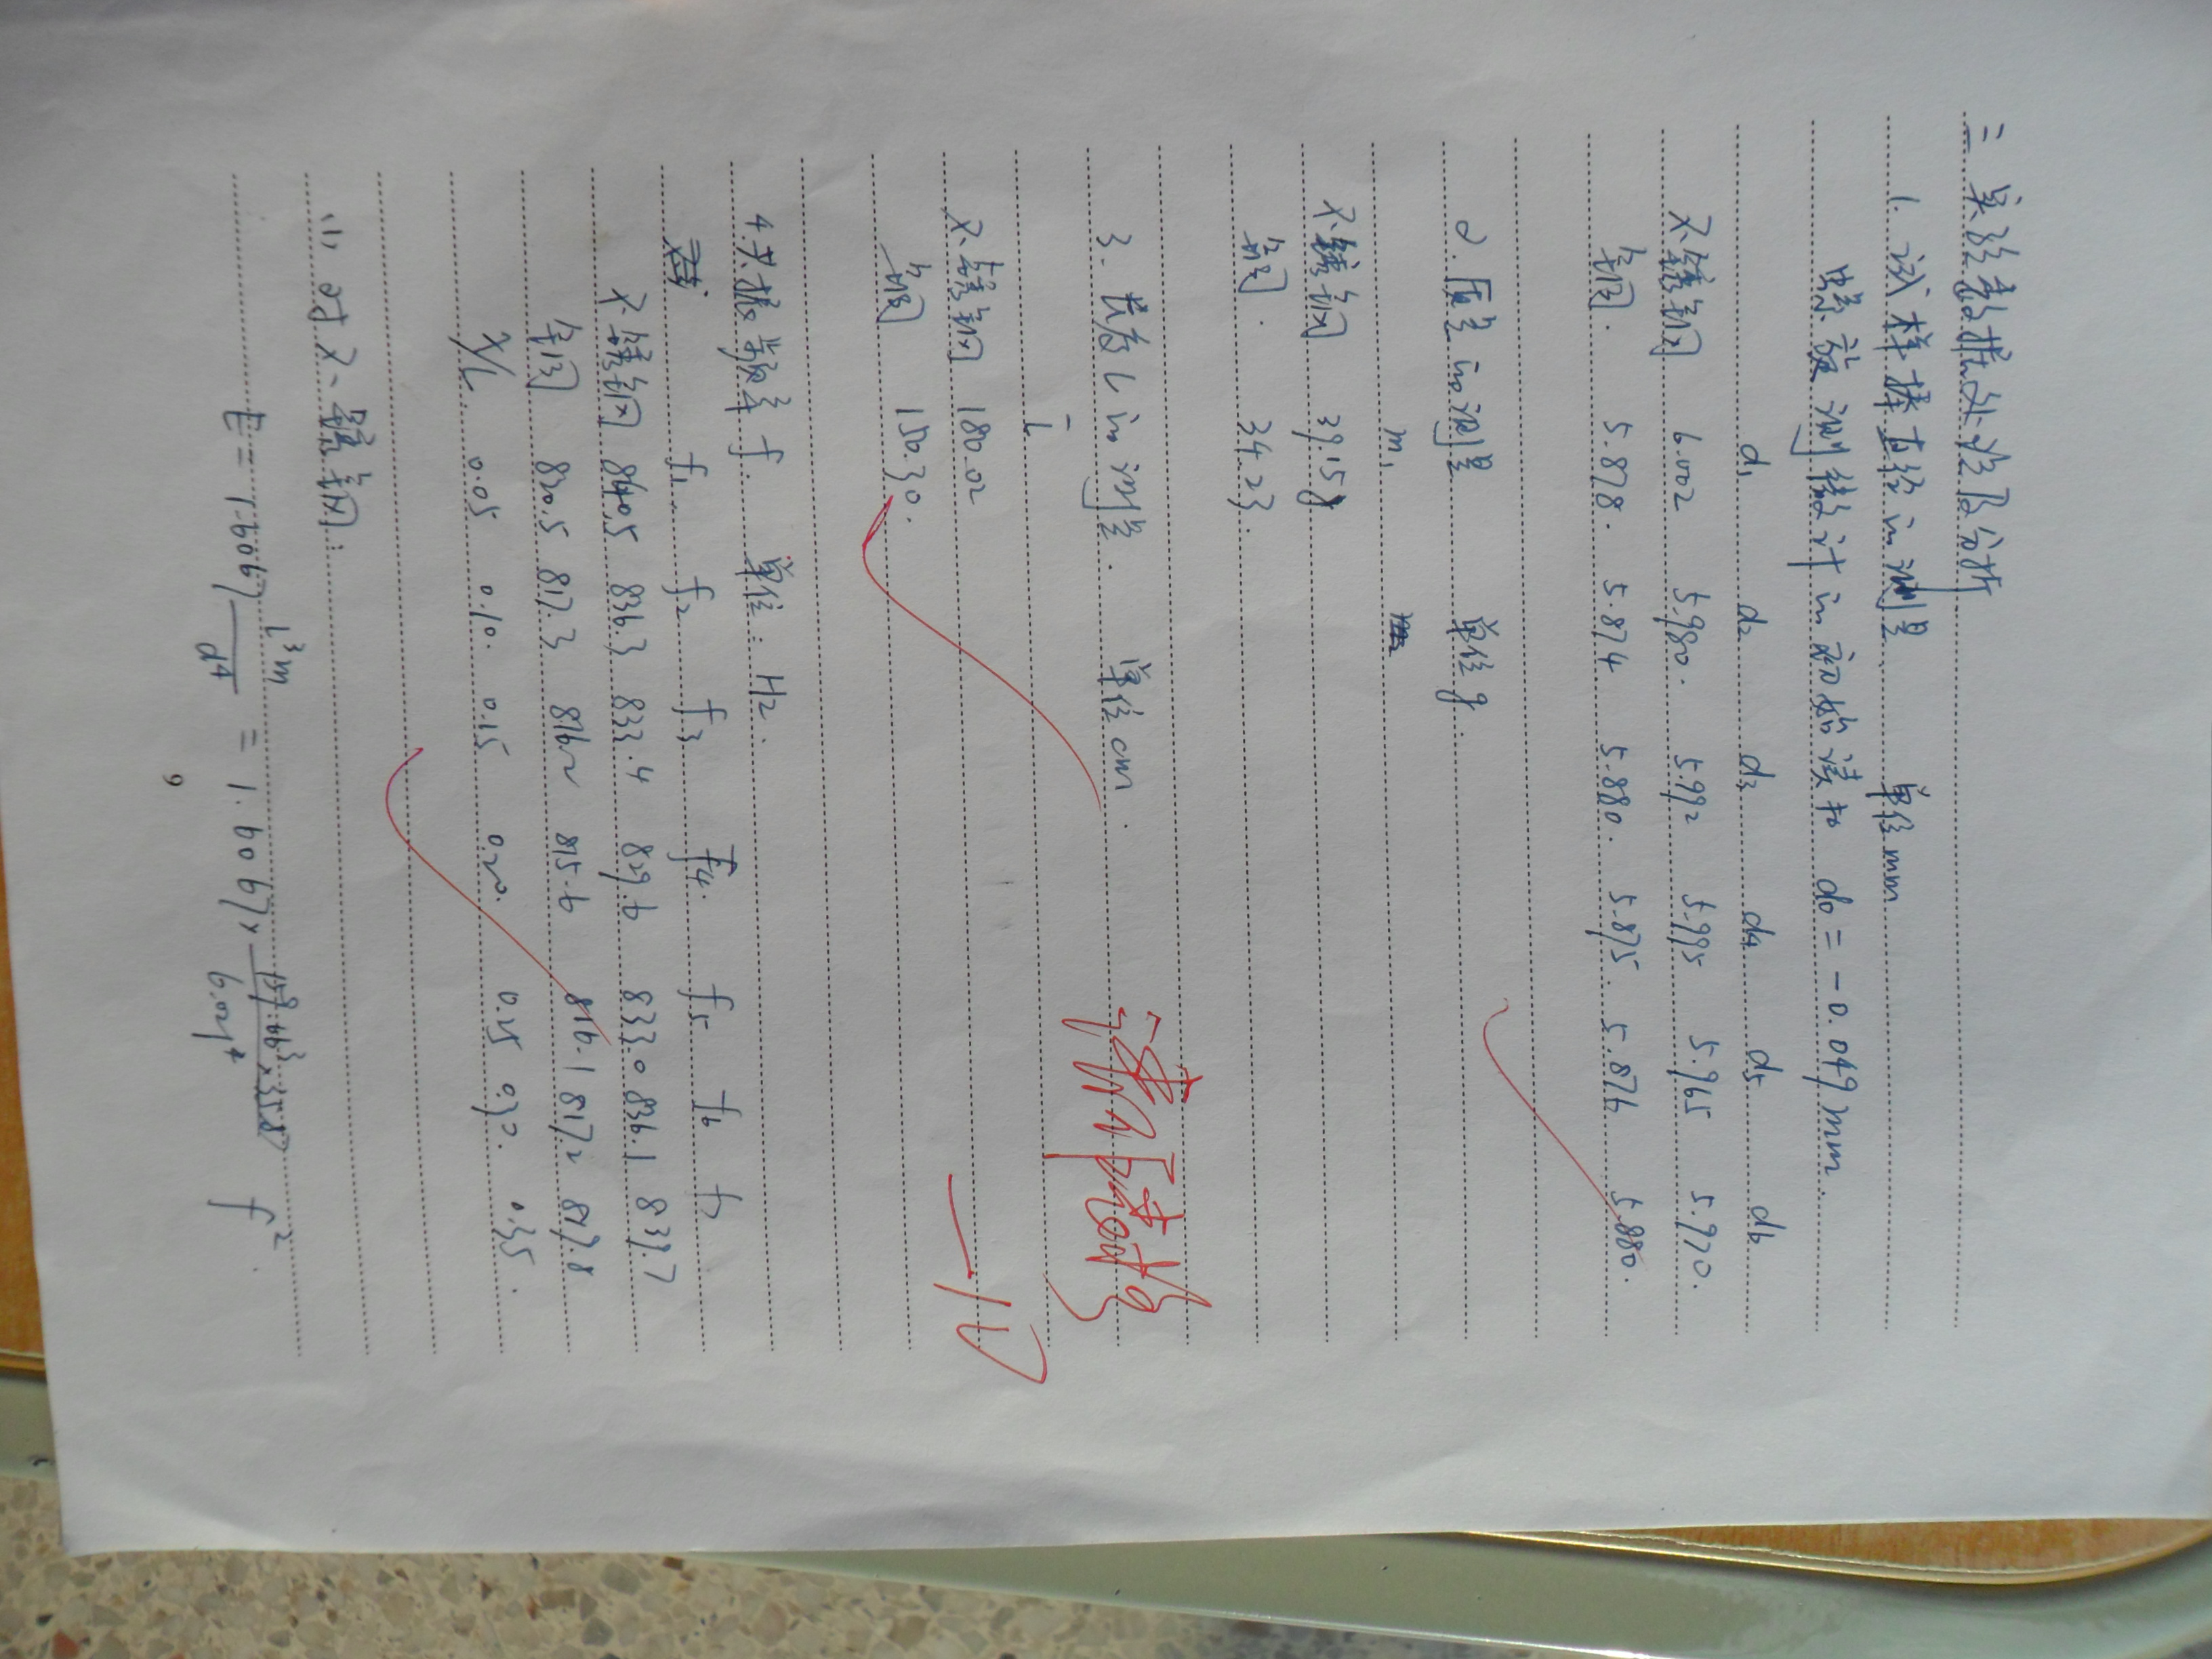 二 实验数据处理及分析
1. 试样棒直径的测量 单位mm
螺旋测微计的初始读书 d0 = -0.049mm.
d1 d2 d3 d4 d5 d6
不锈钢 6.002 5.980. 5.992 5.995 5.965 5.970.
铜. 5.878. 5.874 5.880. 5.875. 5.876 5.880.
2. 质量的测量 单位g.
m1
不锈钢 39.15g
铜. 34.23.
3. 长度L的测量. 单位cm.
L
不锈钢 180.02
铜 150.30.
4. 共振频率f. 单位: Hz.
f1 f2 f3 f4. f5 f6 f7
不锈钢 840.5 836.3 833.4 829.6 833.0 836.1 839.7
铜 830.5 817.3 816.2 815.6 816.1 817.2 817.8
X/L. 0.05 0.10. 0.15 0.20. 0.25 0.30. 0.35.
(1) 对不锈钢:
E = 1.6067 L³m/d⁴ = 1.6067× /6.02⁴ f²
9